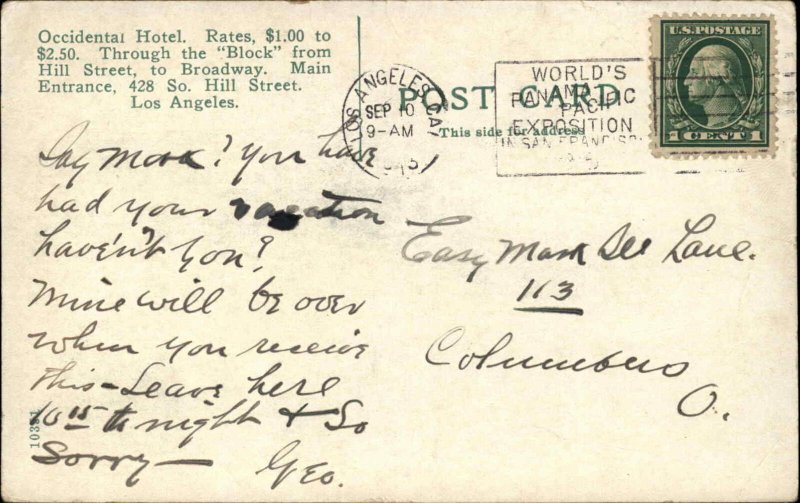 Occidental Hotel. Rates, $1.00 to
$2.50. Through the "Block" from
Hill Street, to Broadway. Main
Entrance, 428 So. Hill Street.
Los Angeles.
LOS ANGELES, CAL
SEP 10
9-AM
POST CARD
This side for address
WORLD'S
PANAMA PACIFIC
EXPOSITION
IN SAN FRANCISCO
U.S. POSTAGE
1 CENT 1
Say Mark? You have
had your vacation
haven't You?
Mine will be over
when you receive
this - Leave here
10 15 tonight & So
Sorry —
Geo.
Easy Mark Lane.
113
Columbus
O.